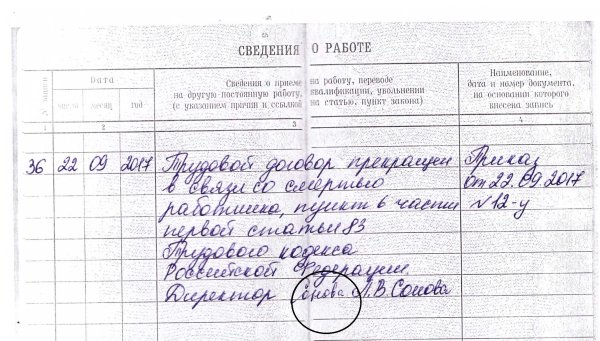 СВЕДЕНИЯ О РАБОТЕ
№ записи
Дата
число
месяц
год
Сведения о приеме на работу, переводе
на другую постоянную работу, квалификации, увольнении
(с указанием причин и ссылкой на статью, пункт закона)
Наименование,
дата и номер документа,
на основании которого
внесена запись
1
2
3
4
36 22 09 2017 Трудовой договор прекращен Приказ
в связи со смертью от 22.09.2017
работника, пункт 6 части N 12-у
первой статьи 83
Трудового кодекса
Российской Федерации.
Директор Сонова Л.В.Сонова